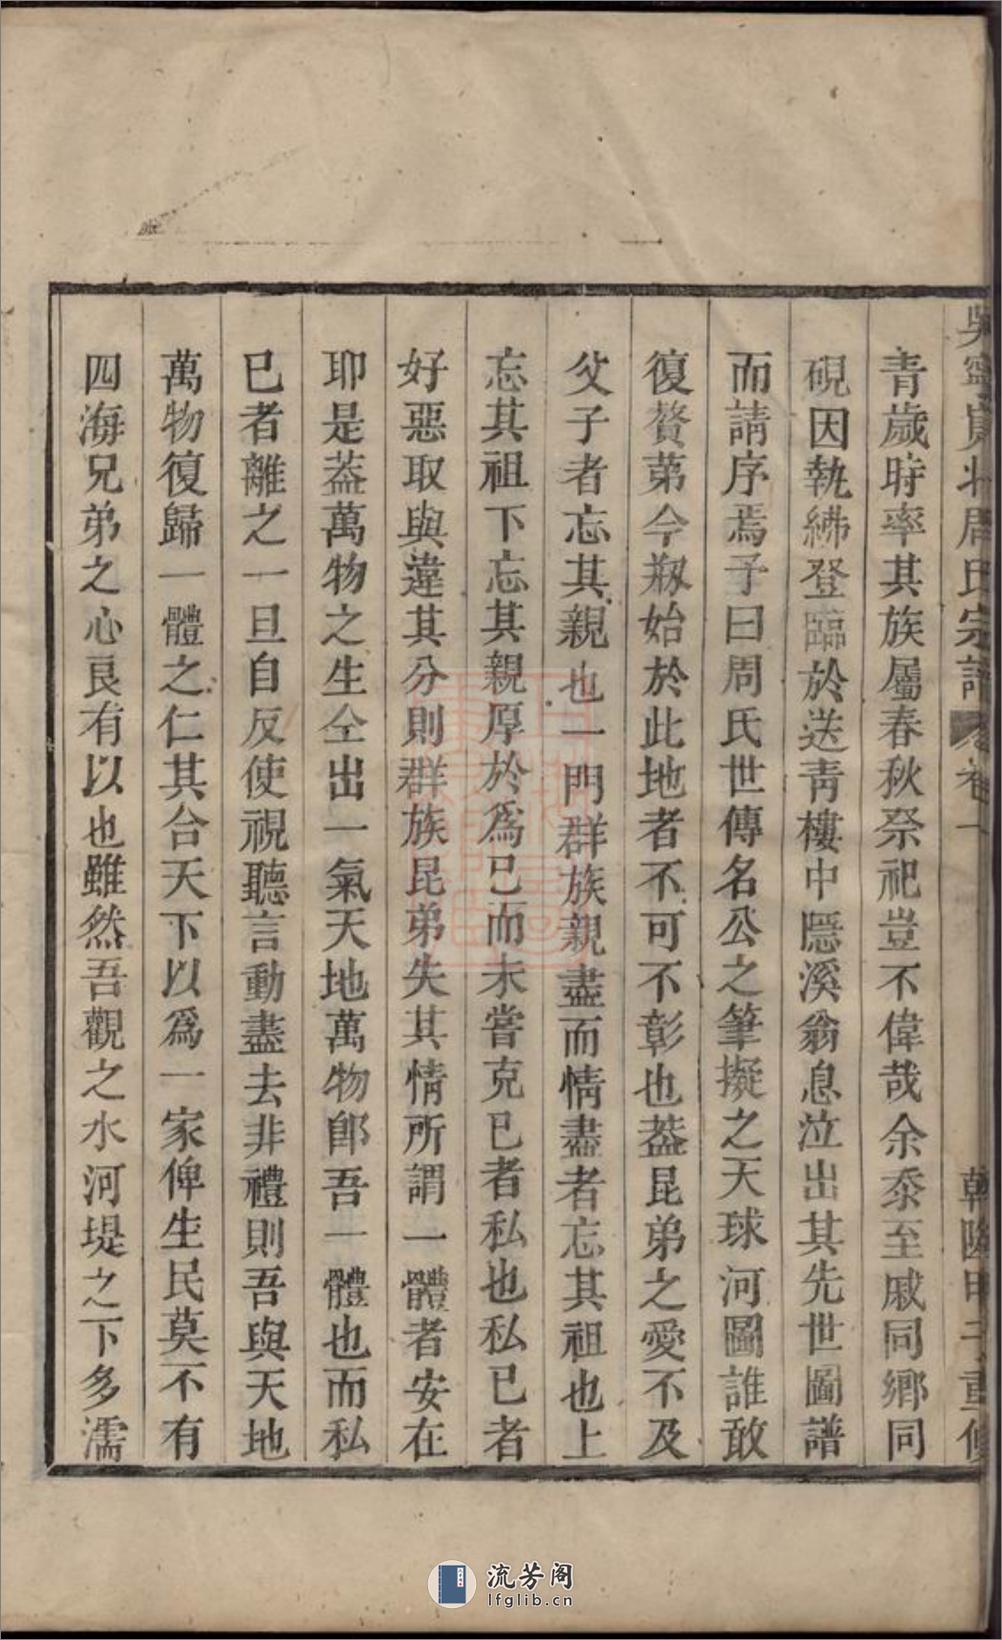 吳寧貢牀周氏宗譜 卷一 乾隆甲子重修
青歲時率其族屬春秋祭祀豈不偉哉余忝至戚同鄉同
硯因執紼登臨於送青樓中隱溪翁息泣出其先世圖譜
而請序焉予曰周氏世傳名公之筆擬之天球河圖誰敢
復贅苐今剏始於此地者不可不彰也葢昆弟之愛不及
父子者忘其親也一門群族親盡而情盡者忘其祖也上
忘其祖下忘其親厚於爲己而未嘗克已者私也私已者
好惡取與違其分則群族昆弟失其情所謂一體者安在
耶是葢萬物之生仝出一氣天地萬物卽吾一體也而私
已者離之一旦自反使視聽言動盡去非禮則吾與天地
萬物復歸一體之仁其合天下以爲一家俾生民莫不有
四海兄弟之心良有以也雖然吾觀之水河堤之下多濡
流芳阁
lfglib.cn